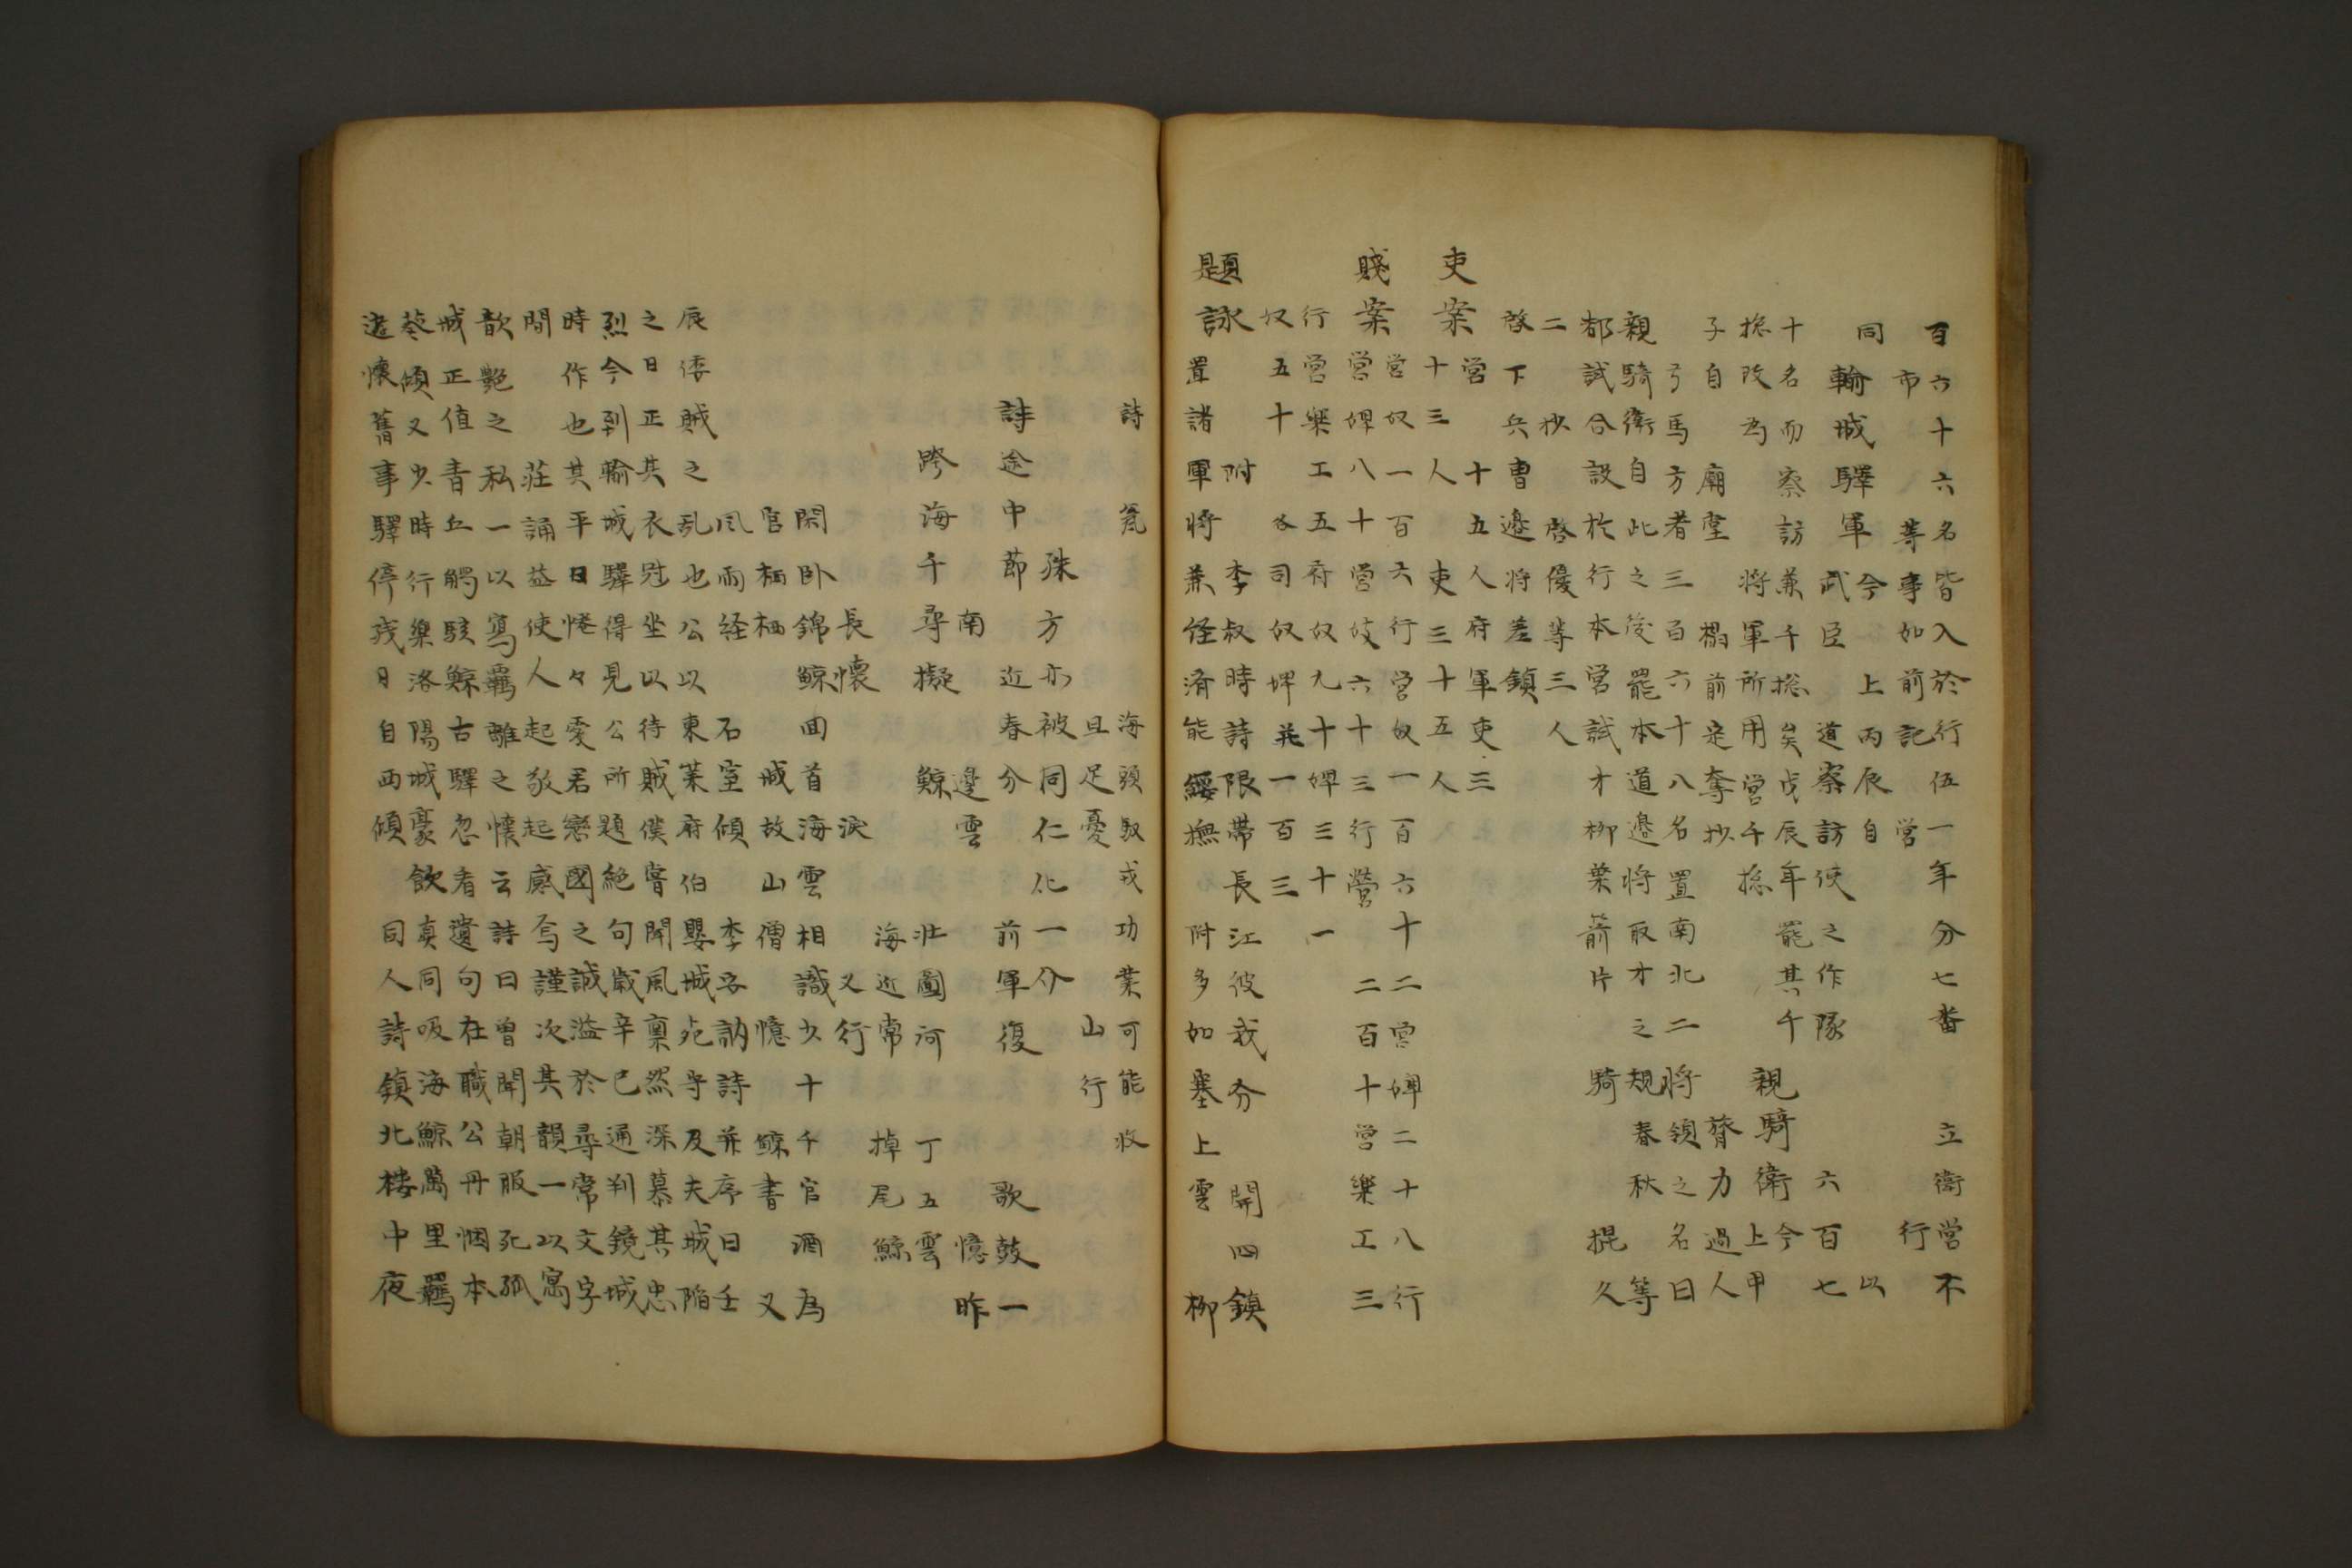 百六十六名皆入於行伍一年分七番立衛營不
市等事如前記營行
同今上丙辰自以
輸城驛軍武臣道察訪使之作隊六百七
十名而察訪兼千摠矣戊辰年罷其千今
摠改為將軍所用營千摠親騎衛上甲
子自廟堂榻前定奪抄膂力過人
弓馬方者三百六十八名置南北二將領之名曰
親騎衛自此之後罷本道邊將取才之規春秋等
都試合設於行本營試才柳葉箭片騎久
二抄啓優等三人
啓下兵曹邊將差鎮
營十五人府軍吏三
吏案十三人吏三十五人
營奴一百六行營奴一百六十二營婢二十八行
賤案營婢八十營妓六十三行營二百十營樂工三
行營樂工五府奴九十婢三十一
奴五十各司奴婢並一百三
題詠附李叔時詩限帶長江彼我分開四鎮
置諸軍將兼経濟能綏撫附多如塞上雲柳
詩瓮海頭馭戎功業可能收
且足憂山行
殊方亦被同仁化一介
詩途中節近春分前軍復歌鼓一
南邊雲憶昨
跨海千尋擬鯨壯圖河丁五雲
海近常掉尾鯨
長懷淚又行
閑卧錦鯨回首海雲相識少十千官酒為
官栖栖城故山僧憶鯨書又
風雨経石室傾李客訥詩并序曰壬
辰倭賊之乱也公以東萊府伯嬰城死守及夫城陷
之日正其衣冠坐以待賊僕嘗聞風稟然深慕其忠
烈今到輸城驛得見公所題絶句歲辛巳通判鏡城
時作也其平日惓々愛君戀國之誠溢於尋常文字
間莊誦益使人起敬起感焉謹次其韻一以寓
歆艶之私一以寫羈離之懷云詩曰曾聞朝服死孤
城正值青丘觸駭鯨古驛忽看遺句在職公丹悃本
葵傾又少時行樂洛陽城豪飲真同吸海鯨萬里羈
遠懷舊事驛停残日自西傾同人詩鎮北樓中夜